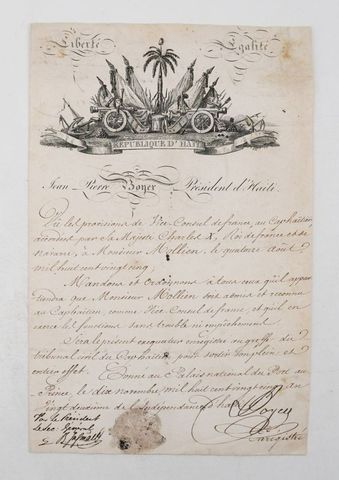 Liberté Egalité
REPUBLIQUE D'HAITI
Jean Pierre Boyer Président d'Haïti.
Vu les provisions de Vice-Consul de france, au Cap haïtien,
accordées par sa Majesté Charles X, Roi de france et de
Navarre, à Monsieur Mollien, le quatorze Août
mil huit cent vingt cinq;
Mandons et Ordonnons à tous ceux qu'il appar-
tiendra que Monsieur Mollien soit admis et reconnu
au Cap haïtien, comme Vice Consul de france, et qu'il en
exerce les fonctions sans trouble ni empêchement.
Sera le présent exequatur enregistré au greffe du
Tribunal civil du Cap haïtien, pour sortir son plein et
entier effet. Donné au Palais national du Port au
Prince, le dix novembre mil huit cent vingt cinq, an
vingt deuxième de l'Indépendance d'haïti.
Par le Président Boyer
Le Sec. Général
B. Inginac
Enregistré